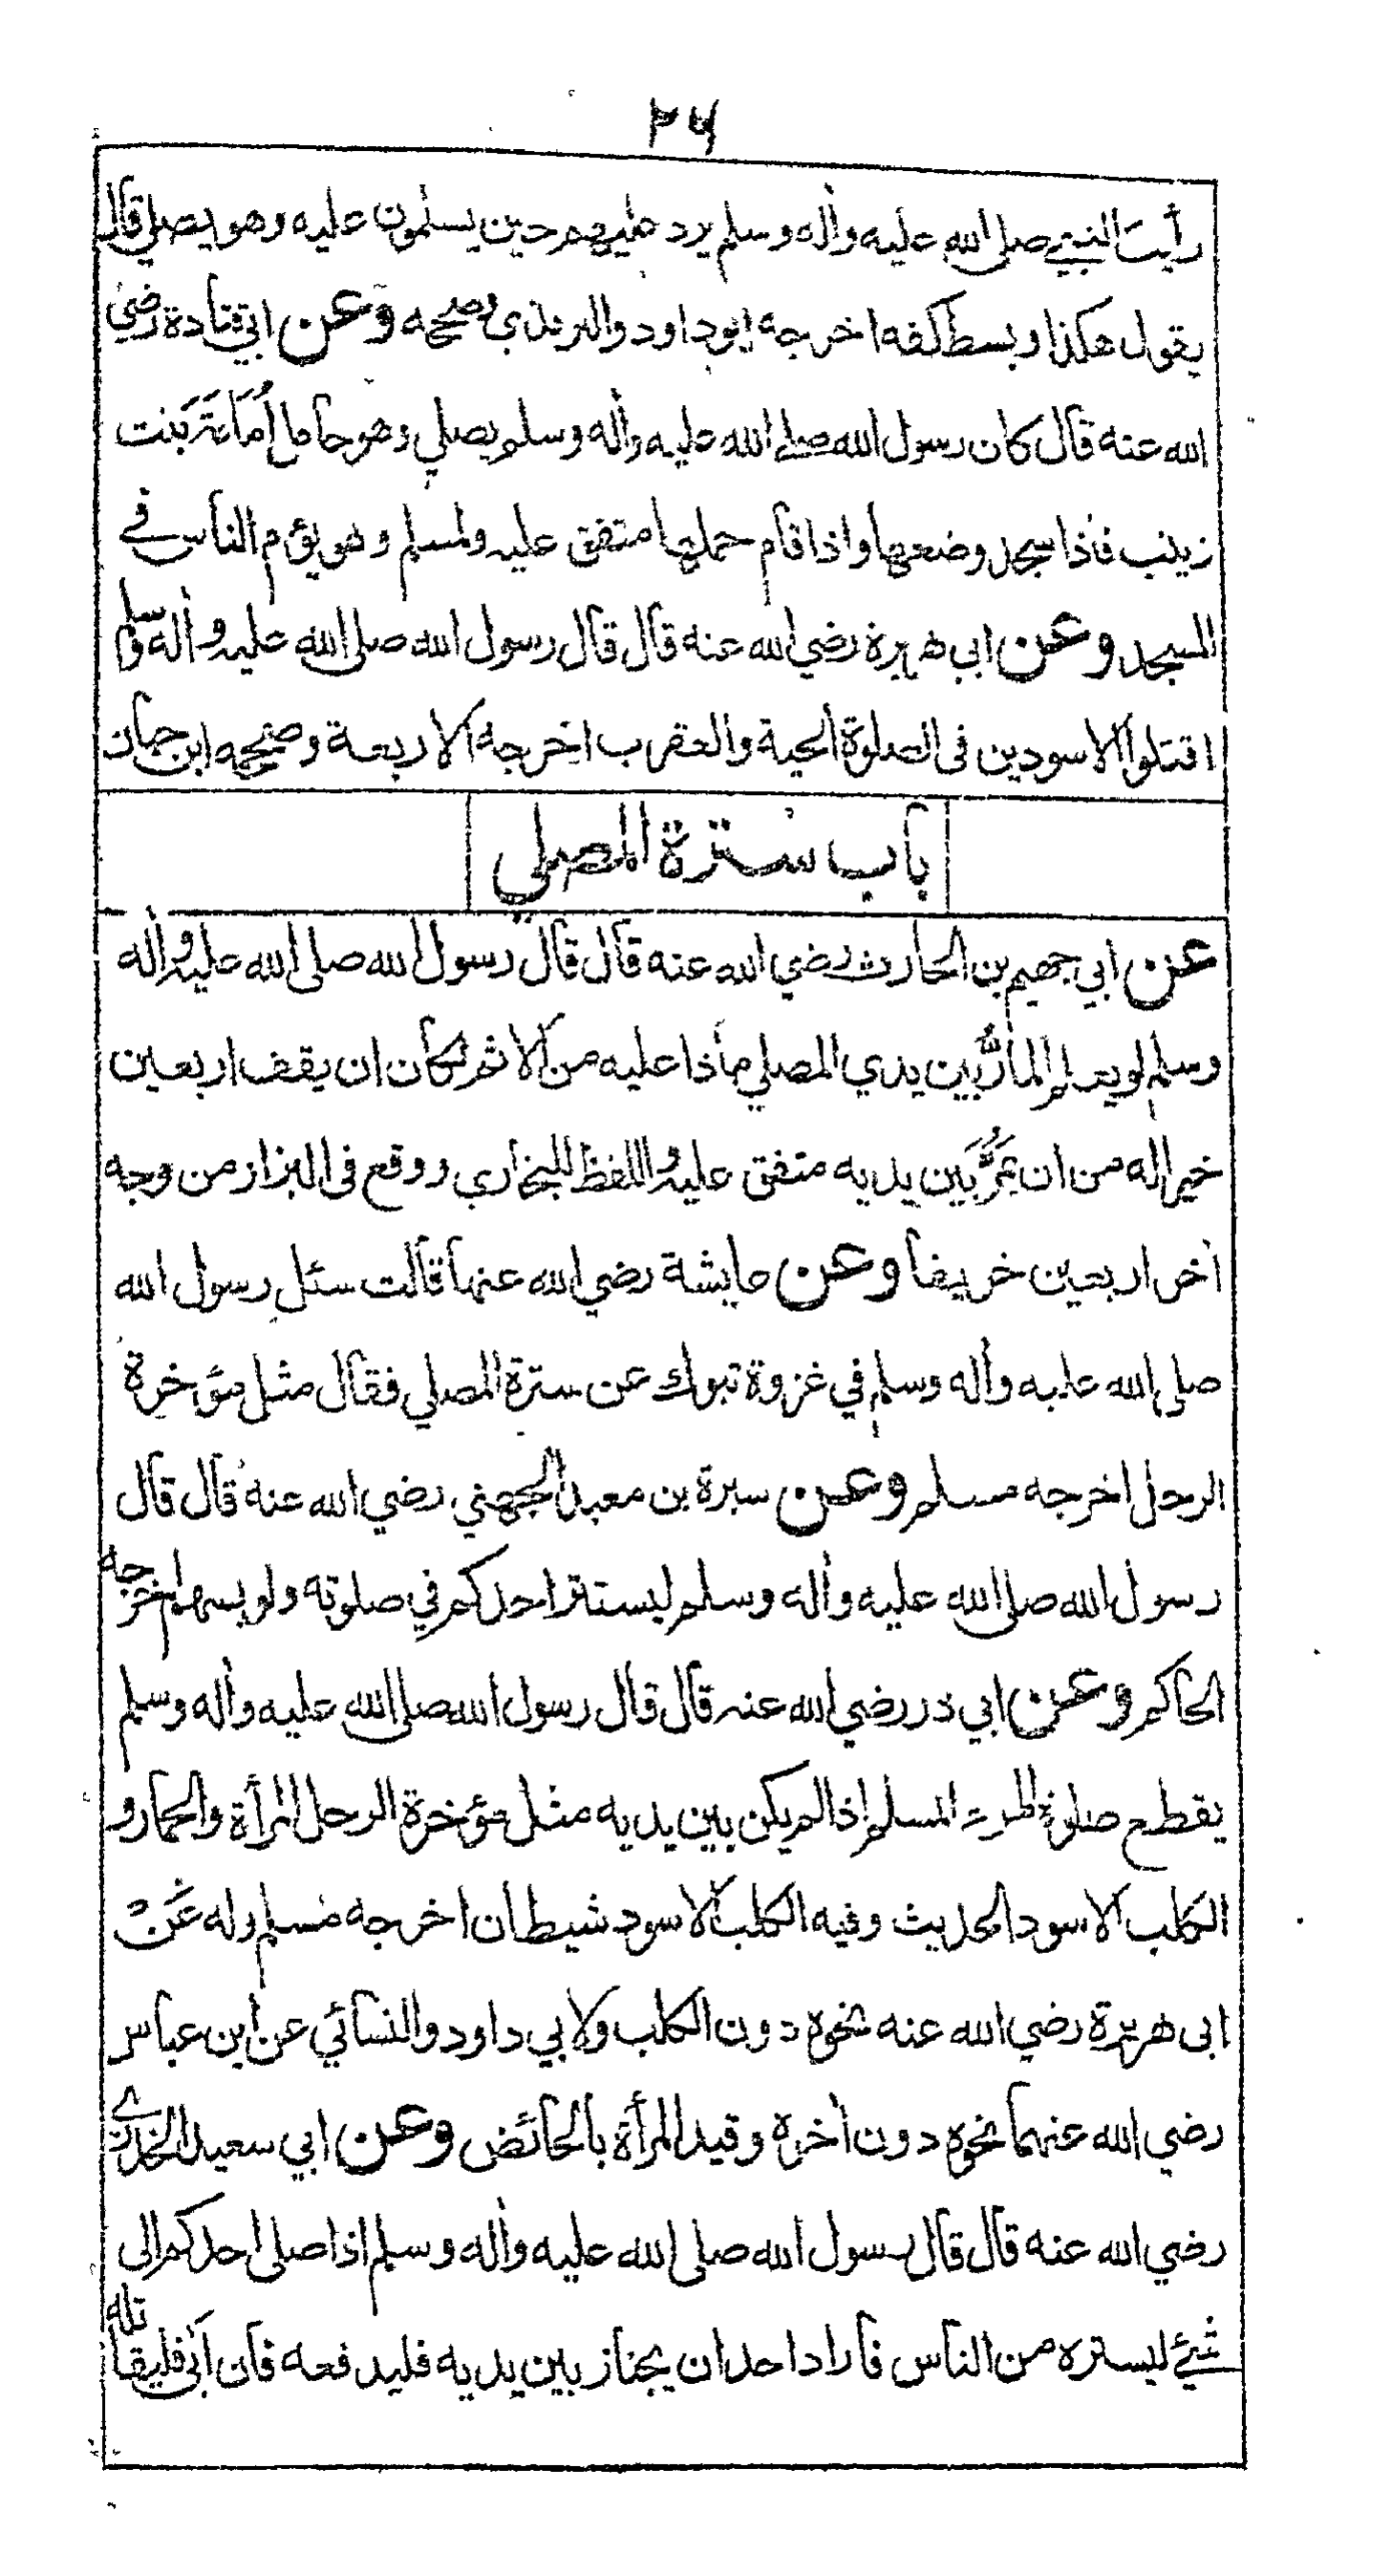 ٢٦
رأيت النبي صلى الله عليه وأله وسلم يرد عليهم حين يسلمون عليه وهو يصلي قال
يقول هكذا وبسط كفه اخرجه ابوداود والترمذي وصححه وعن ابي قتادة رضي
الله عنه قال كان رسول الله صلى الله عليه وأله وسلم يصلي وهو حامل أمامة بنت
زينب فاذا سجد وضعها واذا قام حملها متفق عليه ولمسلم وهو يؤم الناس في
المسجد وعن ابي هريرة رضي الله عنه قال قال رسول الله صلى الله عليه وأله وسلم
اقتلوا الاسودين في الصلوة الحية والعقرب اخرجه الاربعة وصححه ابن حبان
باب سترة المصلي
عن ابي جهيم بن الحارث رضي الله عنه قال قال رسول الله صلى الله عليه وأله
وسلم لو يعلم المارُّ بين يدي المصلي ماذا عليه من الاثم لكان ان يقف اربعين
خيرا له من ان يمُرَّ بَين يديه متفق عليه واللفظ للبخاري ووقع في البزار من وجه
أخر اربعين خريفا وعن عايشة رضي الله عنها قالت سئل رسول الله
صلى الله عليه وأله وسلم في غزوة تبوك عن سترة المصلي فقال مثل مؤخرة
الرحل اخرجه مسلم وعن سبرة بن معبد الجهني رضي الله عنه قال قال
رسول الله صلى الله عليه وأله وسلم ليستتر احدكم في صلوته ولو بسهم اخرجه
الحاكم وعن ابي ذر رضي الله عنه قال قال رسول الله صلى الله عليه وأله وسلم
يقطع صلوة المرء المسلم اذا لم يكن بين يديه مثل مؤخرة الرحل المرأة والحمار و
الكلب الاسود الحديث وفيه الكلب الاسود شيطان اخرجه مسلم وله عَنْ
ابى هريرة رضي الله عنه نحوه دون الكلب ولابي داود والنسائي عن ابن عباس
رضي الله عنهما نحوه دون أخره وقيد المرأة بالحائض وعن ابي سعيد الخدري
رضي الله عنه قال قال رسول الله صلى الله عليه وأله وسلم اذا صلى احدكم الى
شيء ليستره من الناس فأراد احد ان يجتاز بين يديه فليدفعه فان أبى فليقاتله